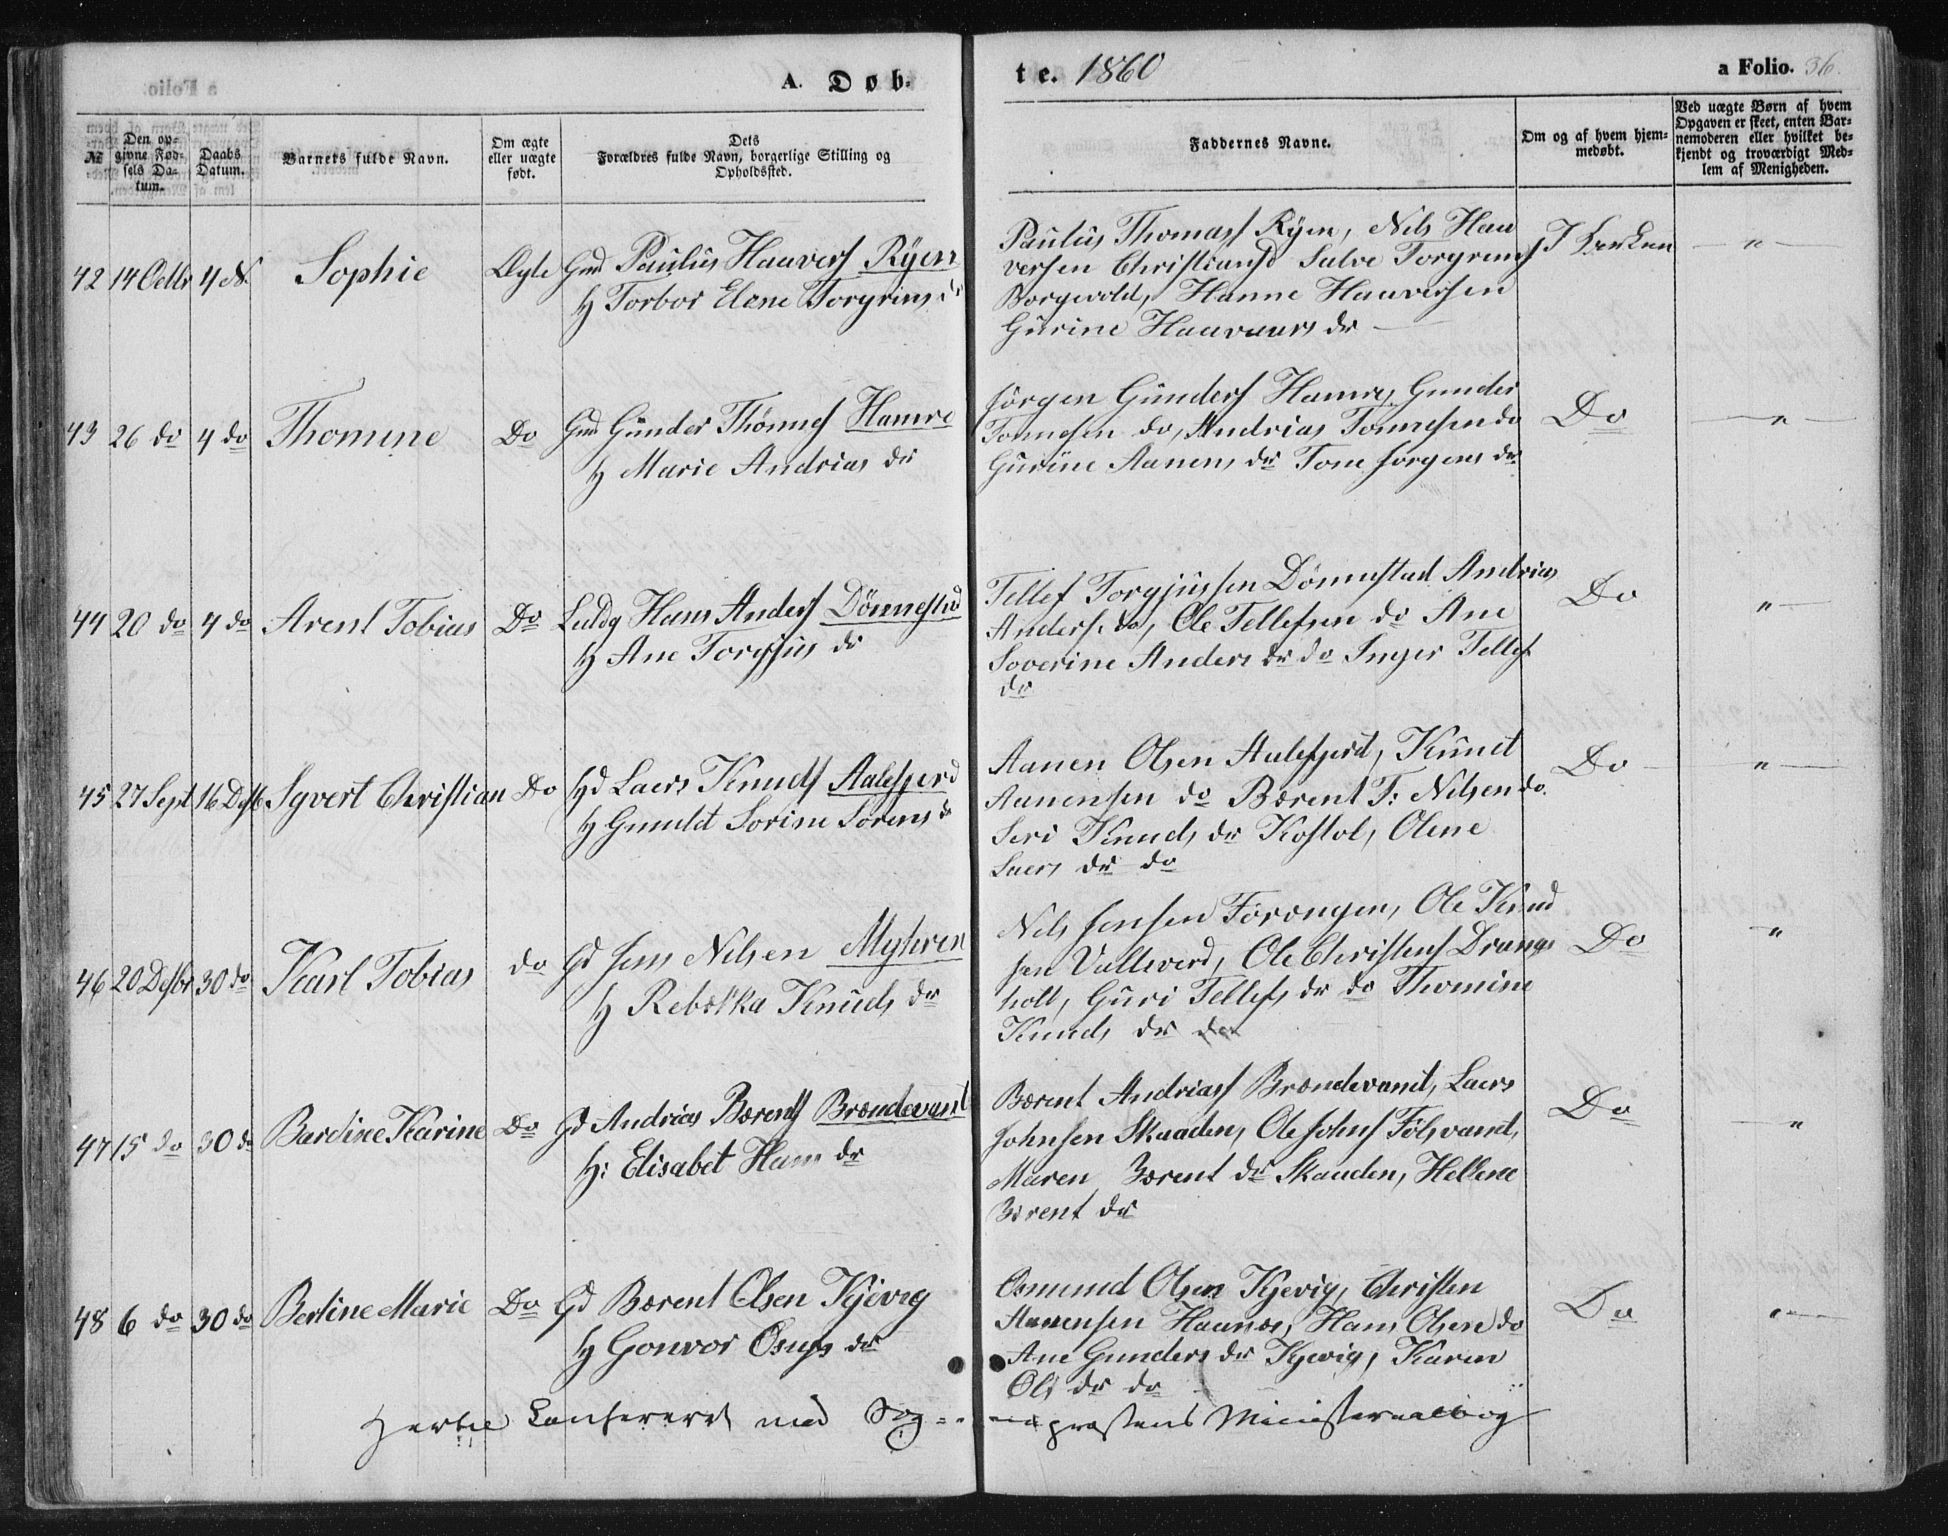 A. Døbte. 1860
a Folio. 36.
№
Den opgivne Fødsels Datum.
Daabs Datum.
Barnets fulde Navn.
Om ægte eller uægte født.
Dets Forældres fulde Navn, borgerlige Stilling og Opholdssted.
Faddernes Navne.
Om og af hvem hjemmedøbt.
Ved uægte Børn af hvem Opgaven er skeet, enten Barnemoderen eller hvilket bekjendt og troværdigt Medlem af Menigheden.
42 14 Octbr 4 N. Sophie Ægte Gmd Paulus Haavers Ryen
H Torbor Elene Torgrims dr
Paulus Thomass Ryen, Nils Haa
versen Christiansd Salve Torgrims
Borgevold, Hanne Haaversen
Gurine Haavaars dr
I Kirken - " -
43 26 do 4 do Thomine Do Gmd Gunder Thønnes Hamre
H Marie Andrias dr
Jørgen Gunders Hamre, Gunder
Tønnesen do, Andrias Tønnesen do
Gurine Aanens dr Tone Jørgens dr
Do - " -
44 20 do 4 do Arent Tobias Do Hans Anders Dønnestad
H Ane Torgjus dr
Tellef Torgjussen Dønnestad Andrias
Anders. do, Ole Tellefsen do Ane
Soverine Anders dr do Inger Tellef
dr
Do " -
45 27 Sept 16 Desb Syvert Christian Do Gd Laers Knuds Aalefjerd
H Gunuld Sorine Sørens dr
Aanen Olsen Aalefjerd, Knud
Aanensen do Bærent T: Nilsen do.
Seri Knuds dr Kostol, Olene
Laers dr do
Do - " -
46 20 Desbr 30 do Karl Tobias do Gd Jens Nilsen Myhren
H Rebekka Knuds dr
Nils Jensen Forøngen, Ole Knud
sen Valleverd, Ole Christens Drangs
holt, Guri Tellefs dr do Thomine
Knuds dr do
Do "
47 15 do 30 do Bardine Karine Do Gd Andrias Bærents Brændevand
H: Elisabet Hans dr
Bærent Andriass Brændevand, Laers
Johnsen Skaaden, Ole Johns Følsvand,
Maren Bærent dr Skaaden, Hellene
Bærent dr
Do - "
48 6 do 30 do Bertine Marie Do Gd Bærent Olsen Kjevig
H Gonvor Osuls dr
Osmund Olsen Kjevig, Christen
Aanensen Haanes, Hans Olsen do
Ane Gunders dr Kjevig, Karen
Ols dr do
Do " -
Hertil Confereret med Sog-
nepræstens Ministerialbog